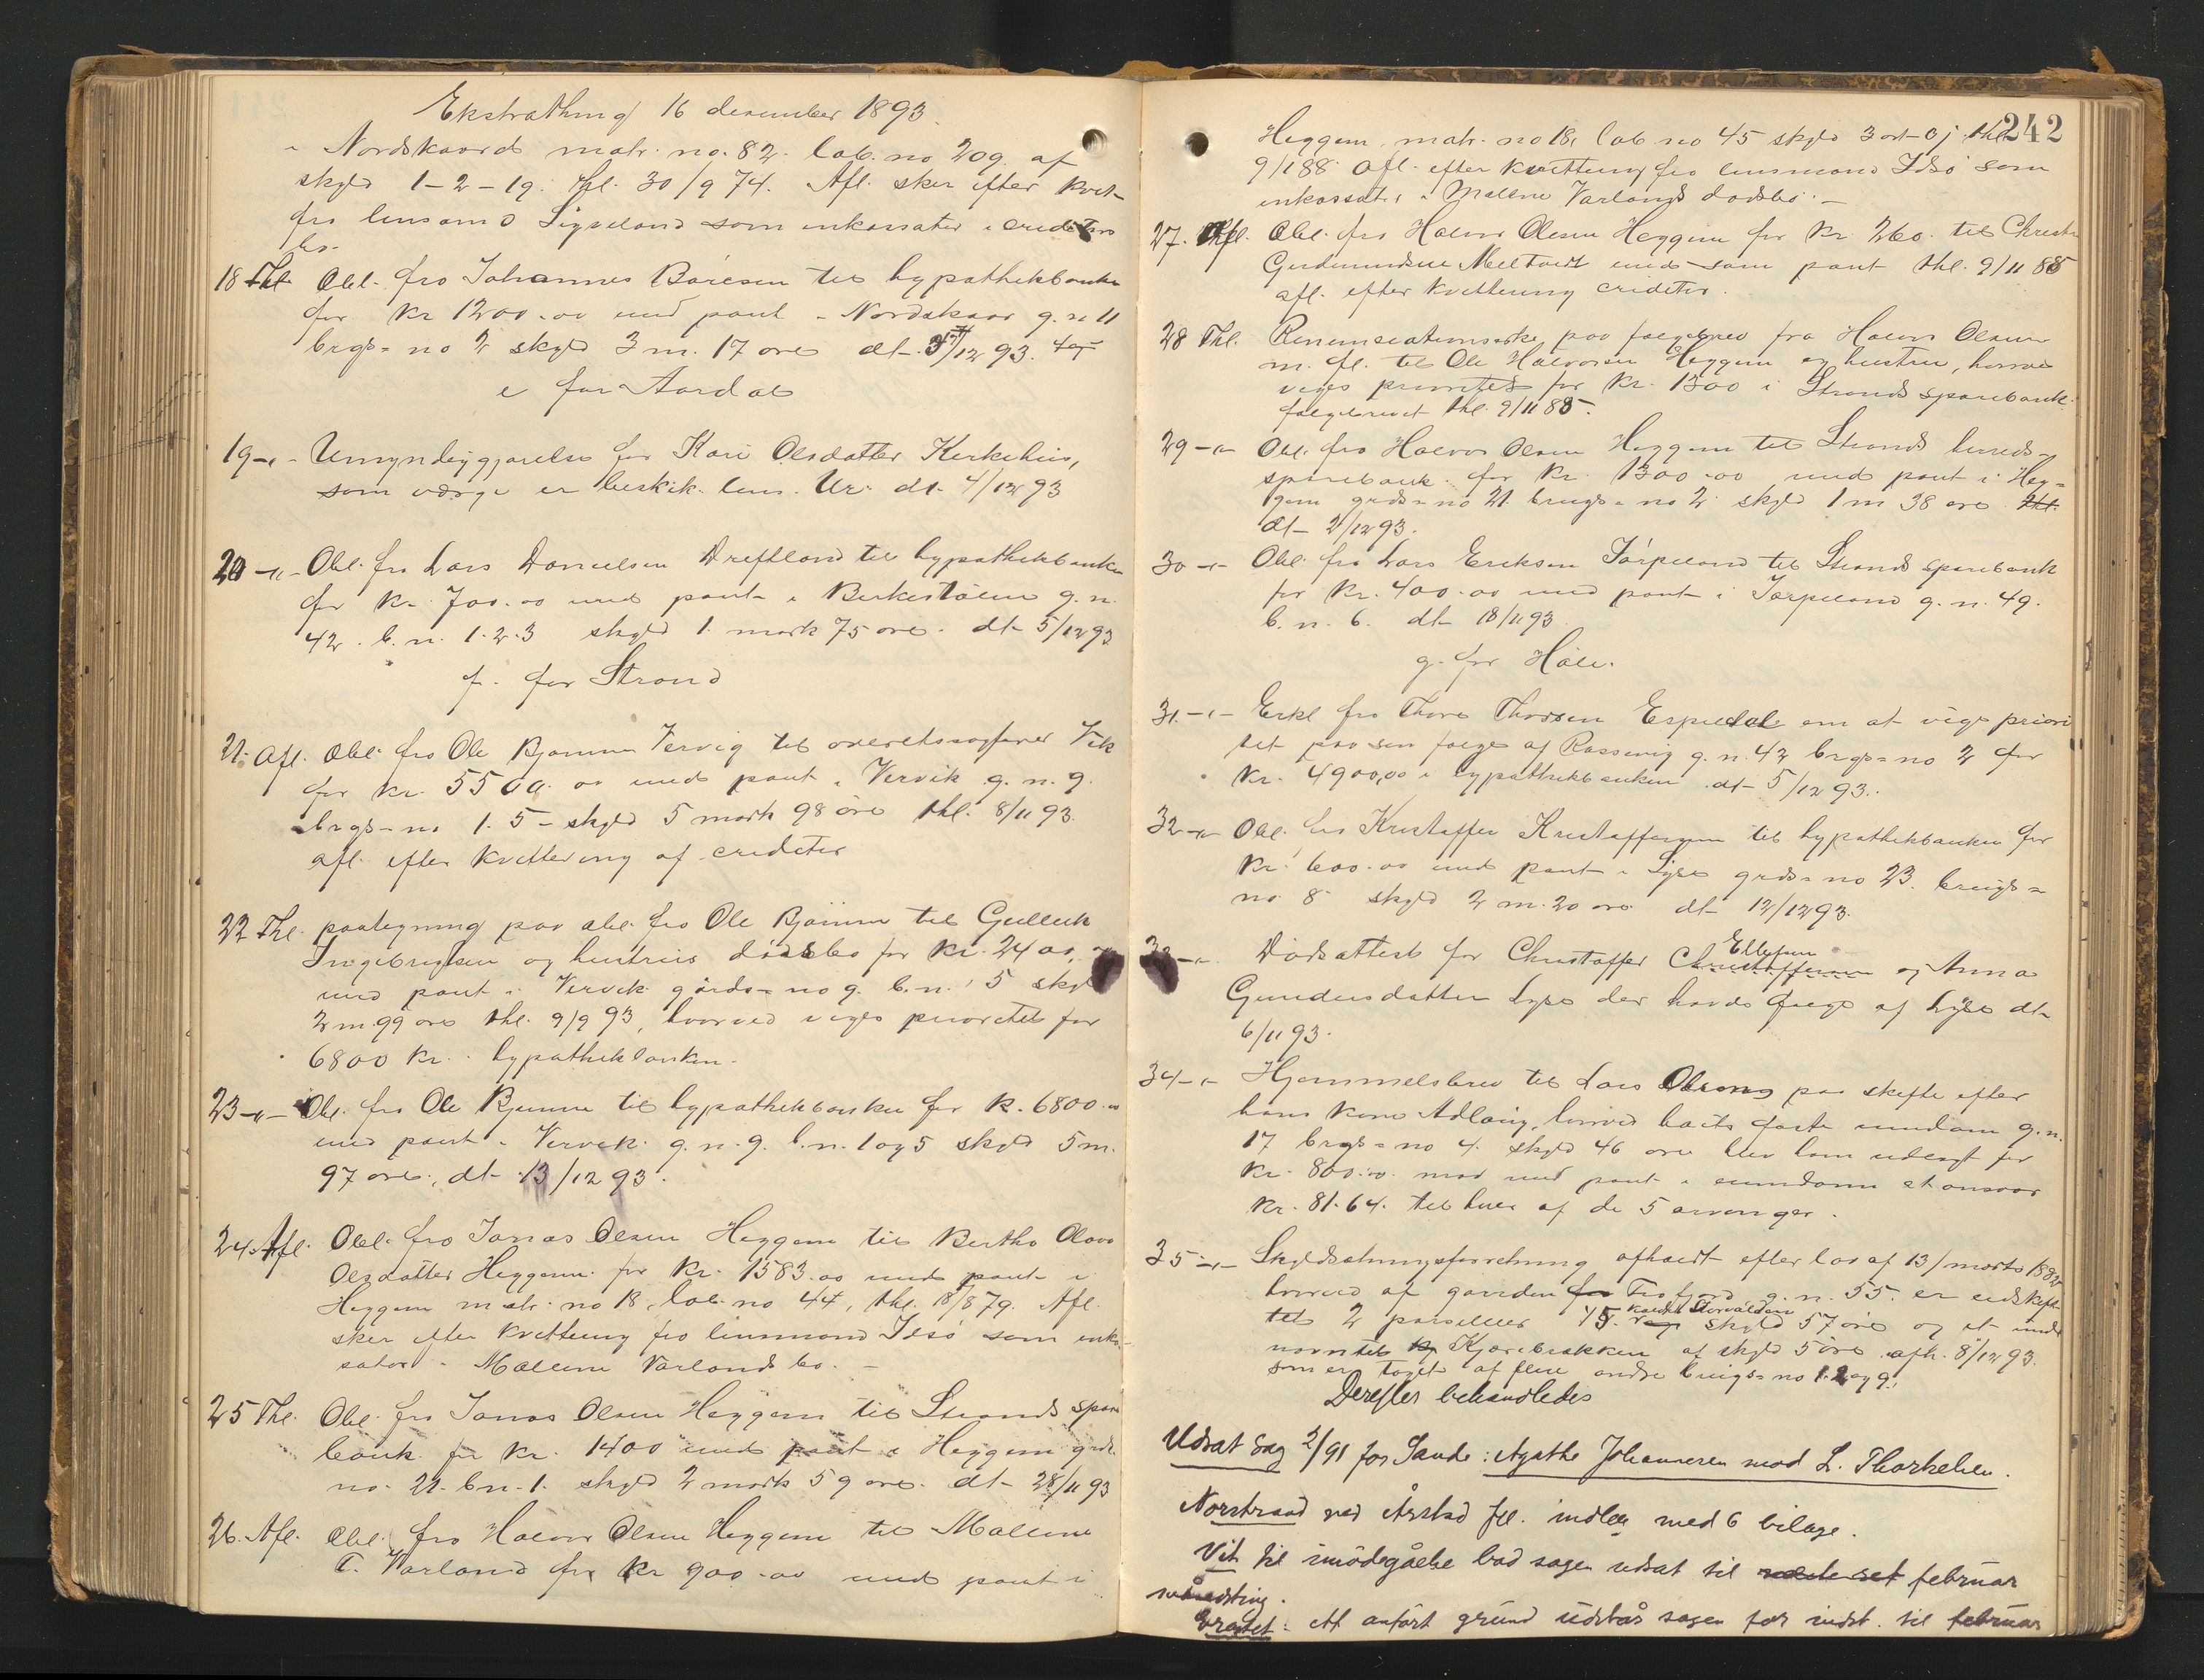 Ekstrathing 16 desember 1893.
i Nordskaard matr. no. 82. løb. no 209 af
skyld 1-2-19. thl. 30/9 74. Afl. sker efter kvit-
fra lensmand Sigveland som inkassator i creditors
bo-
18 Thl. Obl. fra Johannes Båresen til hypothekbanken
for Kr 1200.00 med pant i Nordskaar g. n 11
brgs= no 2 skyld 3 m. 17 øre dt. 5/12 93.
e for Aardal
19-"- Umyndiggjørelse for Kari Olsdatter Kirkehus,
som værge er beskik. lens. Ur. dt. 4/12 93
20-"- Obl. fra Lars Danielsen Dreftland til hypothekbanken
for Kr. 700.00 med pant i Birkestölen g. n.
42. b. n. 1.2.3 skyld 1. mark 75 øre. dt 5/12 93
f. for Strand
21. Afl. Obl. fra Ole Bjømme Vervig til overetssagfører Vik
for Kr. 5500.00 med pant i Vervik g. n. 9.
brgs-no 1. 5 - skyld 5 mark 98 øre thl. 8/11 93.
afl. efter kvittering af creditor
22 Thl. paategning paa obl. fra Ole Bjømme til Gulleik
Ingebrigtsen og hustrus dødsbo for Kr. 2400,
med pant i Vervik gårds=no 9. b.n. 5 skyld
2 m 99 øre thl. 9/9 93, hvorved viges prioritet for
6800 Kr. i hypothekbanken.
23-"- Obl. fra Ole Bjømme til hypothekbanken for K. 6800.00
med pant i Vervik g. n. 9. b. n. 1 og 5 skyld 5 m.
97 øre, dt 13/12 93.
24. Afl. Obl. fra Jonas Olsen Heggem til Bertha Olava
Olsdatter Heggem for Kr. 1583.00 med pant i
Heggem matr. no 18, løb. no 44, thl. 18/8 79. Afl.
sker efter kvittering fra linsmand Idsö som inkas-
sator i Mallene Varlands bo. -
25 Thl. Obl. fra Jonas Olsen Heggem til Strands spare
bank for Kr. 1400 med pant i Heggem grds.
no. 21. b n. 1. skyld 2 mark 59 øre. dt 28/11 93
26. Afl. Obl. fra Halvor Olsen Heggem til Mallene
T. Varland for Kr 900.00 med pant i
242
Heggem matr. no 18, løb no 45 skyld 3 ort - 0 j. thl.
9/1 88 Afl. efter kvittering fra lensmand Idsö som
inkassator i Mallene Varlands dødsbo. -
27. Afl. Obl. fra Halvor Olsen Heggem for Kr. 260. til Christi
Gudmundsen Meltvedt med som pant thl. 9/11 85
afl. efter kvittering creditor.
28 Thl. Renunciationsakt paa folgebrev fra Halvor Olsen
m. fl. til Ole Halvorsen Heggem og hustru, hvorved
viges prioritet for Kr. 1300 i Strands sparebank.
folgebrevet thl. 9/11 85.
29-"- Obl. fra Halvor Olsen Heggem til Strands herreds-
sparebank for Kr. 1300.00 med pant i Heg=
gem grds= no 21. brugs= no 2 skyld 1 m 38 øre thl.
dt 2/12 93.
30-"- Obl. fra Lars Eriksen Jörpeland til Strands sparebank
for Kr. 400.00 med pant i Jørpeland g. n. 49.
b. n. 6. dt 18/11 93
g. for Høle.
31-"- Erkl fra Thore Thorsen Espedal om at vige priori
tet paa sin folge af Rossevig g. n. 42 brgs= no 2 for
Kr. 4900,00 i hypothekbanken dt 5/12 93.
32-"- Obl. fra Kristoffer Kristoffersen til hypothekbanken for
Kr. 600.00 med pant i Lyse grds= no 23. brugs=
no 8 skyld 2 m. 20 øre dt 12/12 93.
33-"- Dødsattest for Christoffer Christoffersen Ellefsen og Anna
Gundersdatter Lyse der havde folge af Lyse dt
6/11 93.
34-"- Hjemmelsbrev til Lars Obrong paa skifte efter
hans kone Adlaug, hvorved boets faste eiendom g. n.
17 brgs= no 4. skyld 46 øre blev ham udlagt for
Kr. 800.00 mod med pant i eiendommen at ansvar
Kr. 81.64. til hver af de 5 arvinger.
35-"- Skyldsætningsforretning afholdt efter lov af 13/ marts 1882
hvorved af gaarden for Frafjord g. n. 55. er udskift
til 2 parseller 15. kaldt Storvålden skyld 57 øre og et under
navnet Kjærebrækken af skyld 5 øre. afh. 8/12 93.
som er taget af flere andre brugs= no 1.2 og 9.
Derefter behandledes
Udsat sag 2/91 for Sande: Agathe Johannesen mod L. Thorkelsen.
Norstrand ved Årstad fr. indlæg med 6 bilage.
Vik til imödegåelse bad sagen udsat til februar
månedsting.
Eragtet: Af anfört grund udstår sagen før indst. til februar